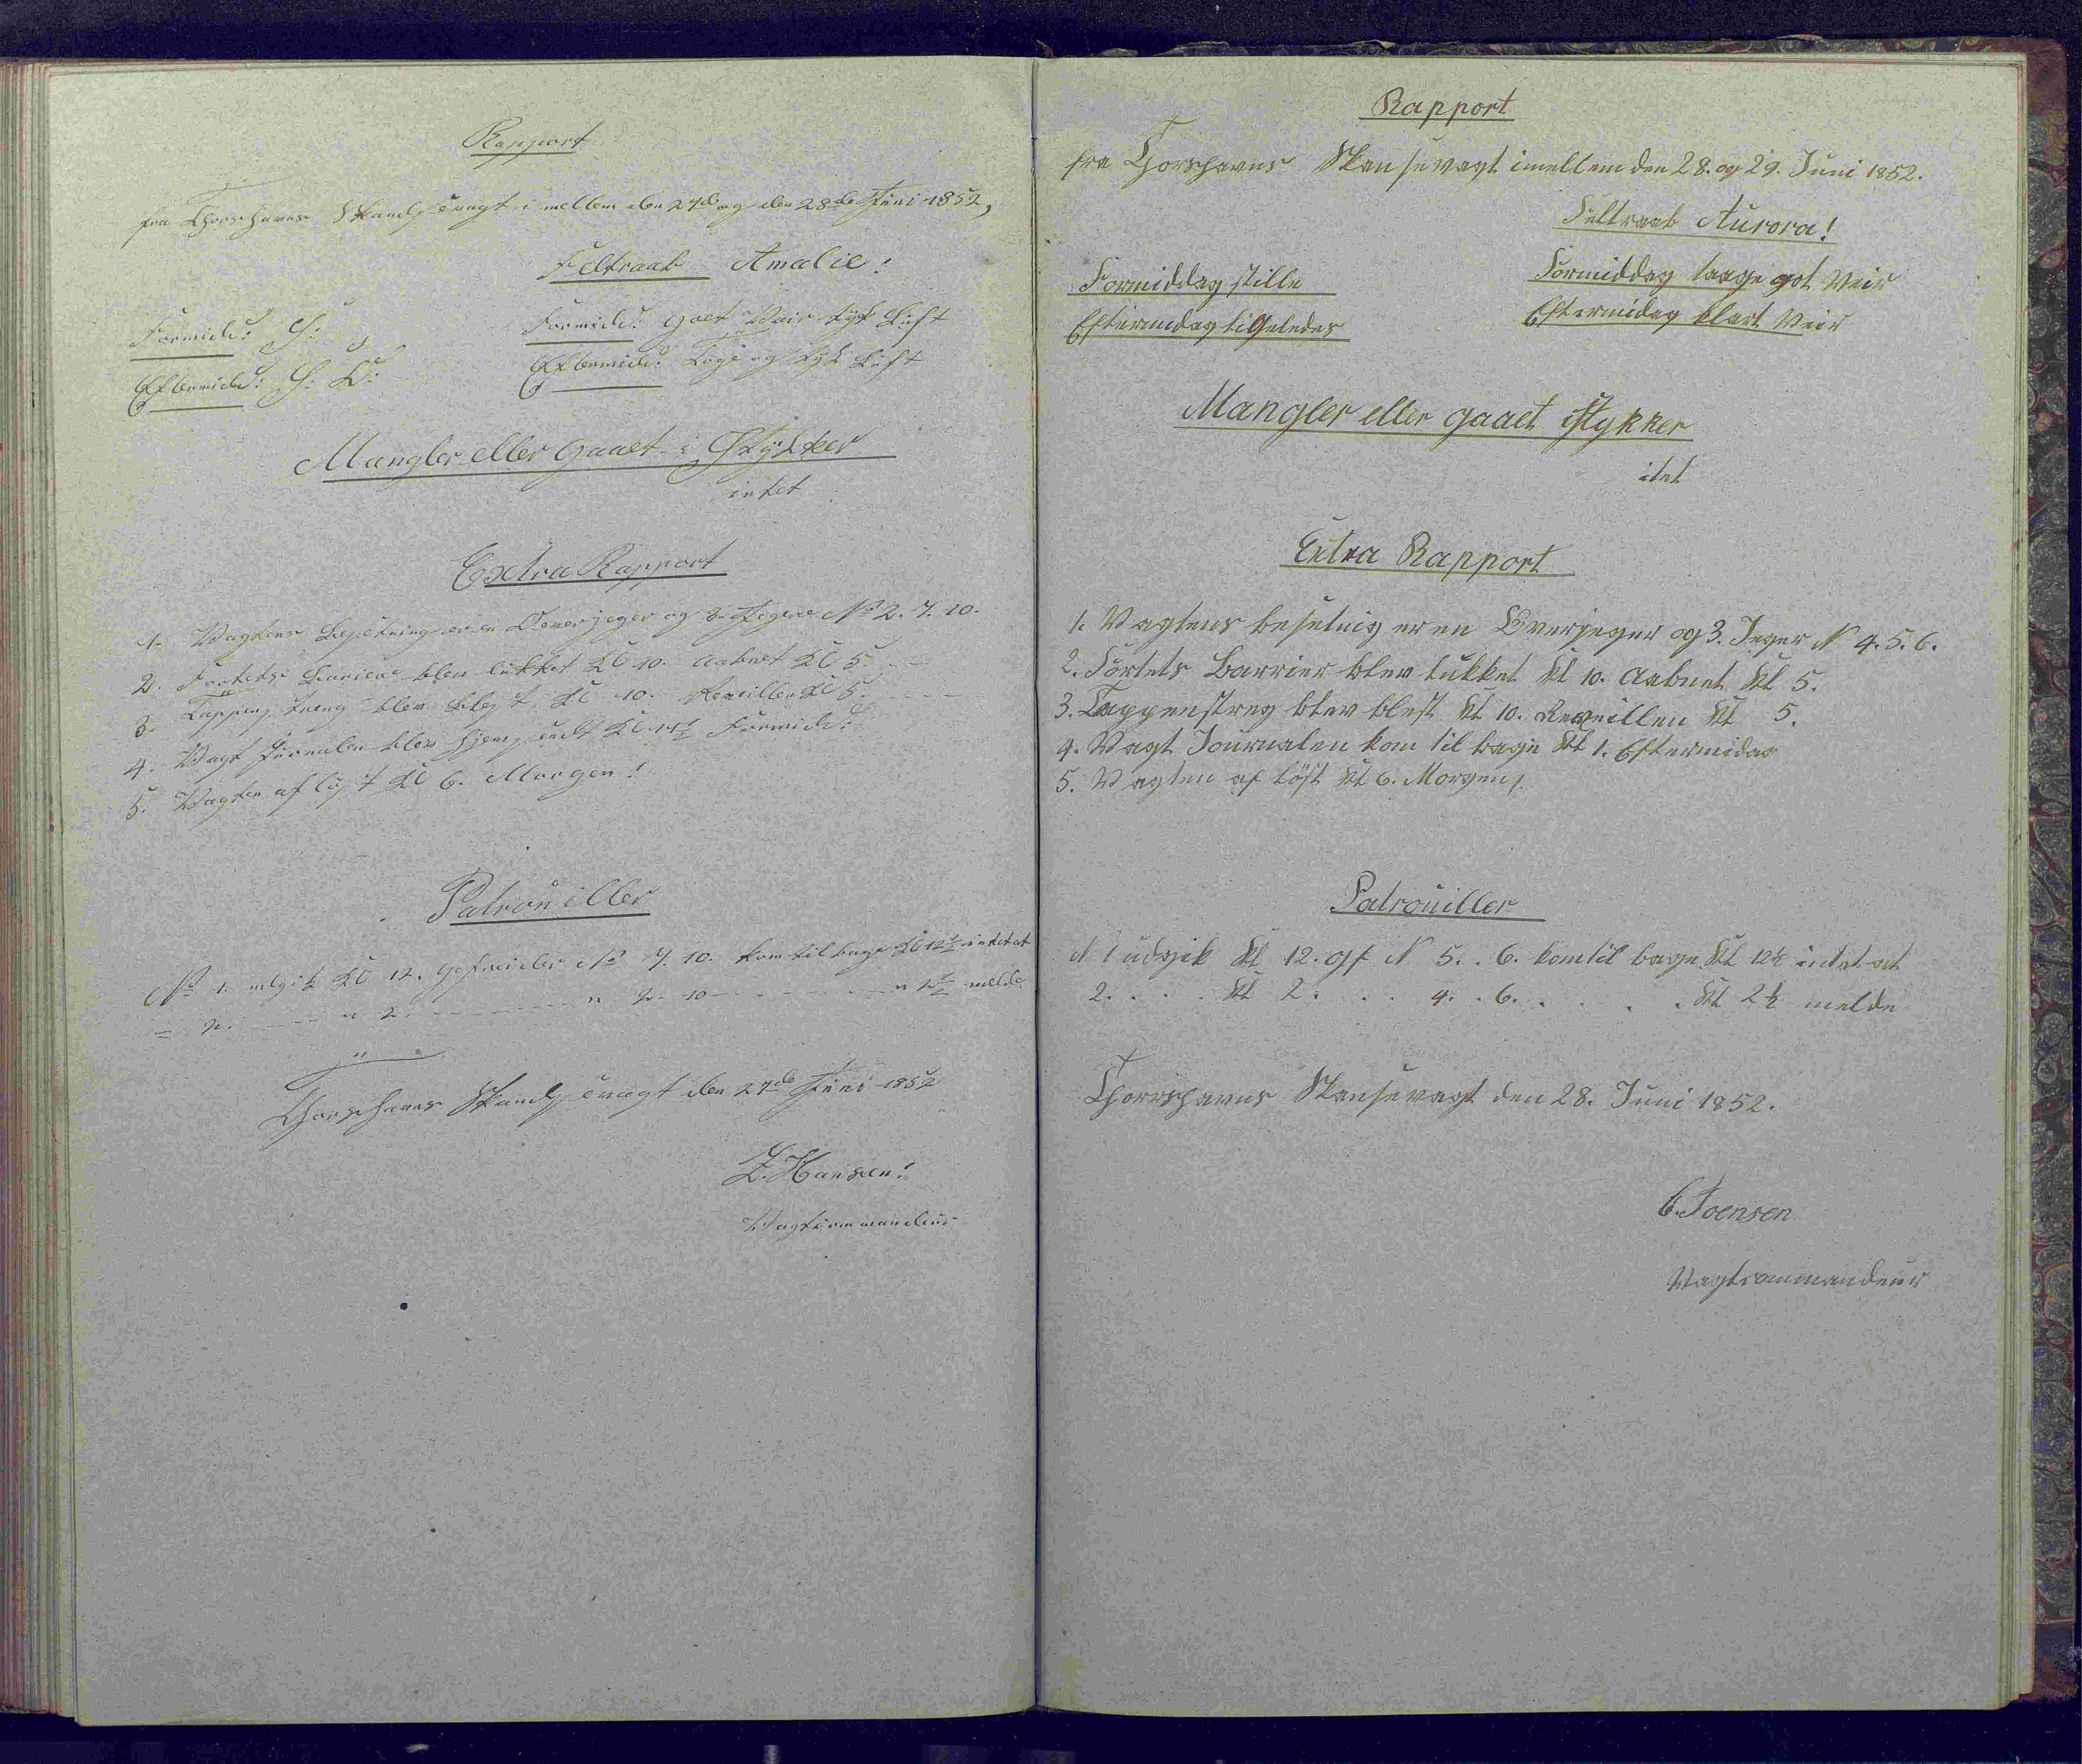 Rapport
fra Thorshavns Skandsevagt i mellem den 27de og den 28de Juni 1852,
Feltraab Amalie!
Formidd: S:
Formidd: Got Veir tyk Luft
Eftermidd: S: O:
Eftermidd: Toge og tyk Luft
Mangler eller Gaaet i Stykker
intet
Extra Rapport
1. Vagtens Besetning er en Overjeger og 3 Jegere No 2. 7. 10.
2. Fortets Bariere blev lukket Kl 10. Aabnet Kl 5.
3. Tappenstreng blev blest Kl 10. Reveillen Kl 5.
4. Vagt Jurnalen blev hjemsendt Kl Formidd:
5. Vagten afløst Kl 6. Morgen!
Patrouiller
No 1. udgik Kl 12. Gefreider No 7. 10. kom tilbage Kl 12½ intet at
" 2. " 2. " 2. 10 " 2½ melde
Thorshavns Skandsevagt den 27de Juni 1852
Z. Hansen!
Vagtcommandeur
Rapport
fra Thorshavns Skansevagt imellem den 28. og 29. Juni 1852.
Feltraab Aurora!
Formiddag stille
Formiddag taage got Veir
Eftermidag ligeledes
Eftermidag klart Veir
Mangler eller gaaet istykker
itet
Extra Rapport
1. Vagtens besetnig er en Overjeger og 3. Jeger N 4. 5. 6.
2. Fortets Barrier blev lukket Kl 10. Aabnet Kl 5.
3. Tappenstreg blev blest Kl 10. Reveillen Kl 5.
4. Vagt Journalen kom til bage Kl 1. Eftermidag
5. Vagten af löst Kl 6. Morgen
Patrouiller
N 1 udgik Kl 12. gf N 5. . 6. kom til bage Kl 12½ intet at
2. . . . Kl 2. . . 4. . 6. . . . . Kl 2½ melde
Thorshavns Skansevagt den 28. Juni 1852.
C. Joensen
Vagtcommandeur